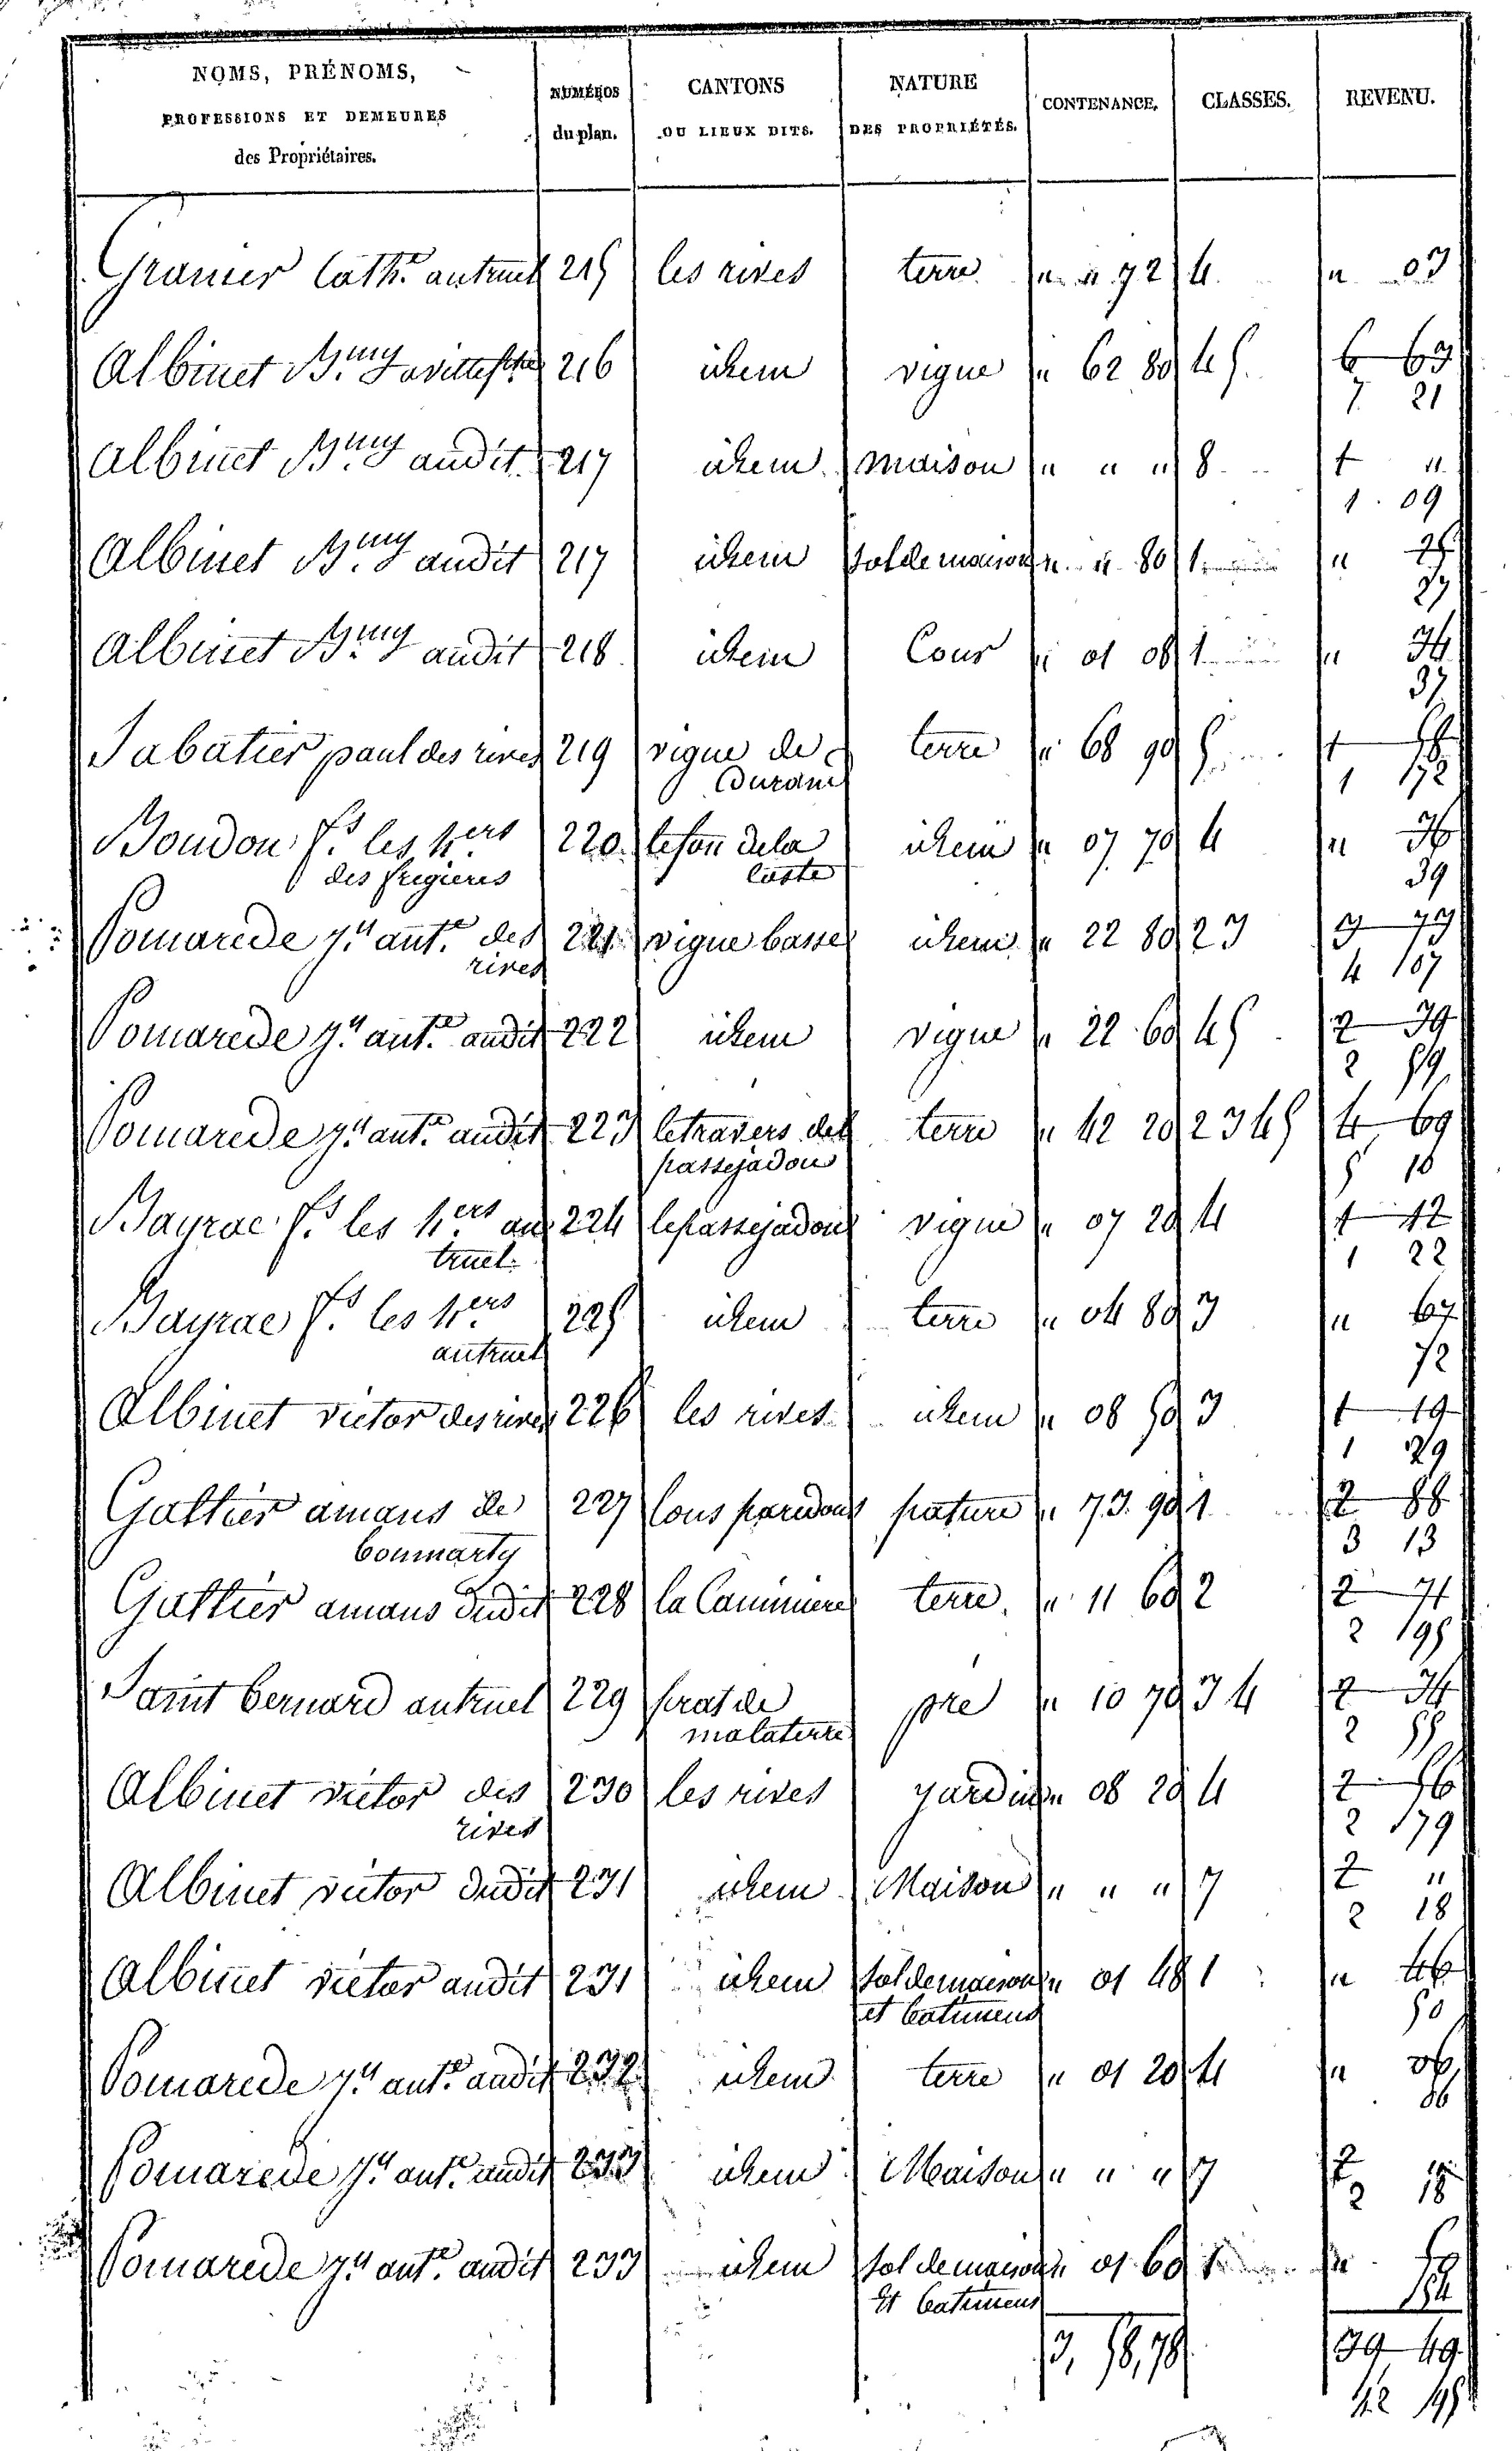 NOMS, PRÉNOMS,
PROFESSIONS ET DEMEURES
des Propriétaires.
NUMÉROS
du plan.
CANTONS
OU LIEUX DITS.
NATURE
DES PROPRIÉTÉS.
CONTENANCE.
CLASSES.
REVENU.
Granier Cathe. autruel 215 les rives terre " " 72 4 " 03
Albinet Bmy 216 idem vigne " 62 80 4 5 6 63
7 21
Albinet Bmy audit 217 idem maison " " " 8 1 "
1 09
Albinet Bmy audit 217 idem sol de maison " " 80 1 " 25
27
Albinet Bmy audit 218 idem Cour " 01 08 1 " 34
37
Sabatier paul des rives 219 vigne de terre " 68 90 5 1
Durand 1 72
Boudon fs. les hers 220 la 07 70 4 " 36
des frigieres coste 39
Pomarede jn ante. des 221 vigne basse idem " 22 80 2 3 3 77
rives 4 107
Pomarede jn ante. audit 222 idem vigne " 22 60 4 5 2 39
2 59
Pomarede jn ante. audit 223 le travers del terre " 42 20 2 3 4 5 4 69
passejadou 5 10
Bayrac fs. les hers au 224 le passejadou vigne " 07 20 4 1 12
truel 1 22
Bayrac fs. les hers 225 idem terre " 04 80 3 " 67
autruel 72
Albinet victor des rives 226 les rives idem " 08 50 3 1 19
1 29
Galtier amans de 227 lous paredous pature " 73 90 1 2 88
bonmarty 3 13
Galtier amans dudit 228 la Caminiere terre " 11 60 2 2 71
2 195
Saint bernard autruel 229 prat de pré " 10 70 3 4 2 34
malaterre 2 55
Albinet victor des 230 les rives jardin " 08 20 4 2 56
rives 2 179
Albinet victor dudit 231 idem Maison " " " 7 2 "
2 18
Albinet victor audit 231 idem sol de maison " 01 48 1 " 46
et batimens 50
Pomarede jn ante. audit 232 idem terre " 01 20 4 " 06
06
Pomarede jn ante. audit 233 idem Maison " " " 7 2
2 18
Pomarede jn ante. audit 233 idem sol de maison " 01 60 1 " 50
et batimens 54
3, 58, 78 39 49
42 95